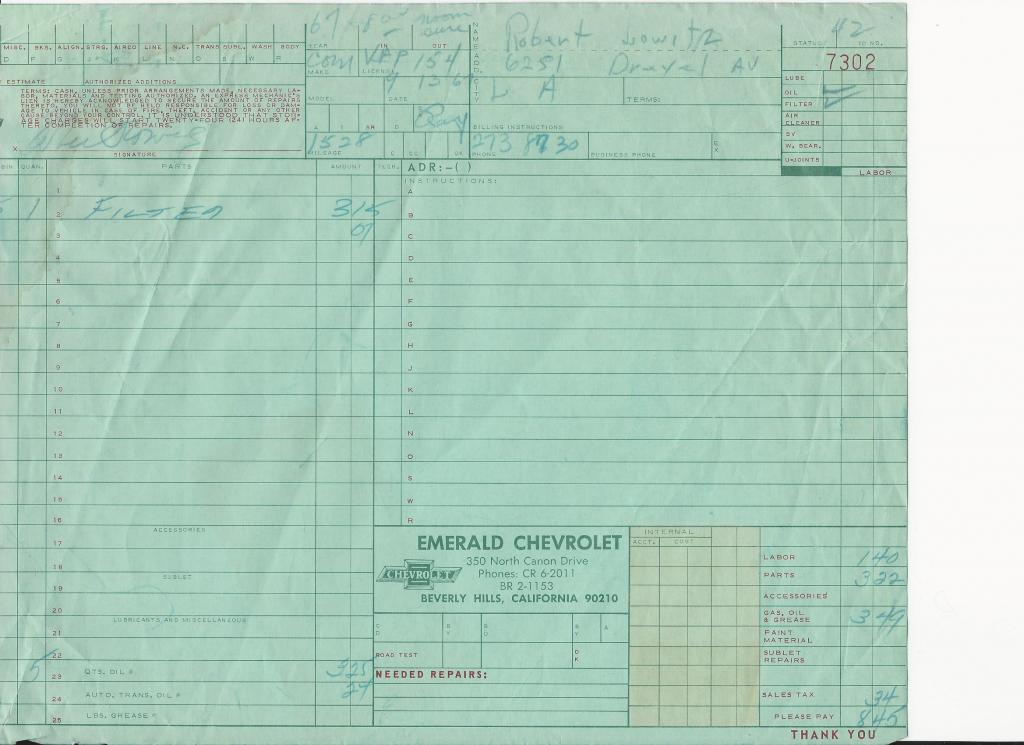 67
YEAR IN OUT
MISC. BKS. ALIGN. STRG. AIRCO LINE N.C. TRANS SUBL. WASH BODY
D F G K L N O S W R
MAKE LICENSE
VAP 154
NAME Robert
ADDRESS 6251 Drexel AV
CITY L A
TERMS:
STATUS 42 ID NO.
7302
ESTIMATE AUTHORIZED ADDITIONS
TERMS: CASH, UNLESS PRIOR ARRANGEMENTS MADE. NECESSARY LA-
BOR, MATERIALS AND TESTING AUTHORIZED. AN EXPRESS MECHANIC'S
LIEN IS HEREBY ACKNOWLEDGED TO SECURE THE AMOUNT OF REPAIRS
THERETO. YOU WILL NOT BE HELD RESPONSIBLE FOR LOSS OR DAM-
AGE TO VEHICLE IN CASE OF FIRE, THEFT, ACCIDENT OR ANY OTHER
CAUSE BEYOND YOUR CONTROL. IT IS UNDERSTOOD THAT STOR-
AGE CHARGES WILL START TWENTY-FOUR (24) HOURS AF-
TER COMPLETION OF REPAIRS.
X
SIGNATURE
MODEL DATE
BILLING INSTRUCTIONS
1528
MILEAGE
273 8730
PHONE BUSINESS PHONE
LUBE
OIL
FILTER
AIR CLEANER
SV
W. BEAR.
U-JOINTS
LABOR
BIN QUAN. PARTS AMOUNT TECH. ADR:-( )
INSTRUCTIONS:
1 A
1 FILTER 2 315 B
3 07 C
4 D
5 E
6 F
7 G
8 H
9 J
10 K
11 L
12 N
13 O
14 S
15 W
16 R
ACCESSORIES
17
18
SUBLET
19
20
LUBRICANTS AND MISCELLANEOUS
21
22
5 23 QTS. OIL # 325
24 AUTO. TRANS. OIL # 24
25 LBS. GREASE #
EMERALD CHEVROLET
350 North Canon Drive
CHEVROLET
Phones: CR 6-2011
BR 2-1153
BEVERLY HILLS, CALIFORNIA 90210
ROAD TEST OK
NEEDED REPAIRS:
INTERNAL
ACCT. COST
LABOR 140
PARTS 322
ACCESSORIES
GAS, OIL & GREASE 349
PAINT MATERIAL
SUBLET REPAIRS
SALES TAX 34
PLEASE PAY 845
THANK YOU